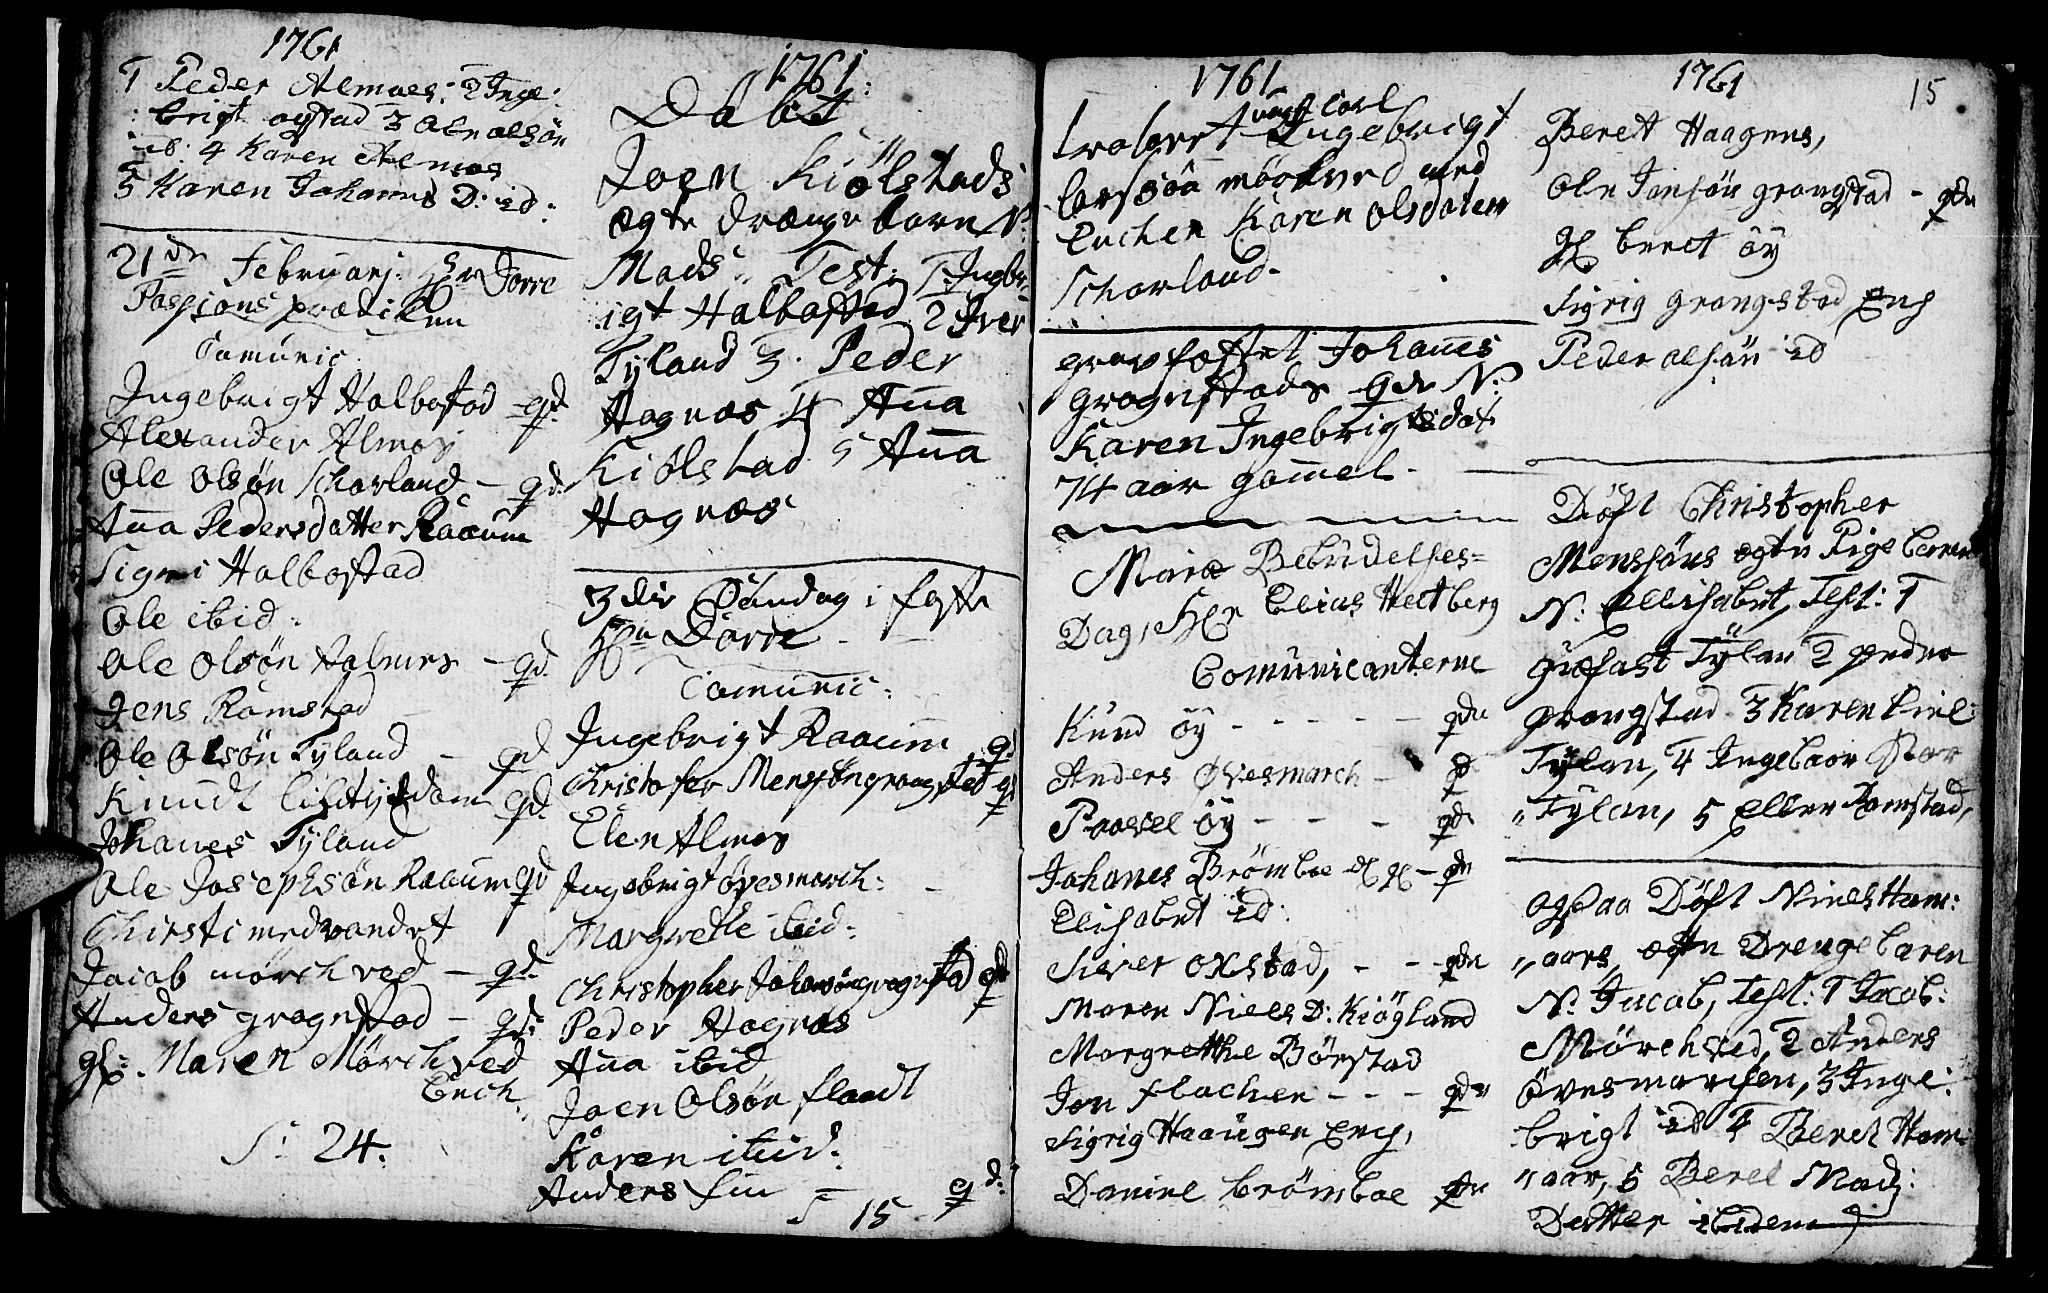 1761
1 Peder Almaes: 2 Inge:
:brigt aystad 3 Ole olsön
ib: 4 Karen Almos
5 Karen Johannes D: id:
21de Februarj: Hr Dorre
Passions prædiken
Comunic:
Ingebrigt Halbostad qd.
Alexander Almos
Ole Olsön Schorland - qd.
Aña Pedersdatter Raaum
Signi Halbostad
Ole ibid:
Ole Olsön Halmes - qd.
Jens Ramstad
Ole Olsön Tyland - qd
Knudt lisetydam qd.
Johanes Tyland
Ole Josephsön Raaum qd
Chirsti medvandet
Jacob mörchved - qd.
Anders grognstad - qd:
gl: Maren Mörchved
Ench.
S: 24.
1761:
Döbt
Joen Kiölstads
ægte drænge barn N:
Mads. Test: 1 Ingebr
igt Halbostad 2 Iver
Tyland 3. Peder
Hagnæs 4 Aña
Kiölstad 5 Aña
Hagnæs
3die Söndag i faste
Hr Dorre
Comunic:
Ingebrigt Raaum qd
Christofer Mensön grongstad qd
Elen Almos
Ingebrigt övesmarch:
Margrethe ibid:
Christopher Johansön grognstad qd
Peder Hagnes
Aña ibid
Joen Olsön flaadt
Karen ibid:
Anders fin - qd:
S 15
1761
trolovet ungt carl
Ingebrigt
larssön mörkved med
Enchen Karen olsdater
Schorland.
gravfæstet Johañes
grognstads qde N:
Karen Ingebrigtsdat
74 aar gamel.
Mariæ Bebudelses=
Dag, Her Elias Heltberg
Comunicanterne
Knud öy - - - - - qde
Anders Övesmarch - qd
Paavel öy - - - qde
Johanes Brömboe - qde
Elisabet id:
Siver oxstad, - - qde
Maren Niels D: Kiögland
Margrethe Börstad
Jon flachen - - - qde
Sigrig Haaugen Ench,
Daniel brömboe qde
1761
15
Beret Haagens,
Ole Jensön grongstad - qde
gl beret öy
Sigrig grongstad Ench
Peder olsön id
Döbt Christopher
Mensöns ægte Pige barn
N: Ellisabet, Test: 1
gufast Tylan 2 peder
grongstad 3 Karen
Tylan, 4 Ingebaar
Tylan, 5 Ellen Ramstad,
ogsaa Döbt Niels Ham:
aars, ægte Drenge baren
N: Jacob, Test: 1 Jacob:
Mörchved, 2 Anders
Övesmarchen, 3 Inge:
brigt id 4 Beret Ham:
aar, 5 Beret Mads:
Datter ibidem